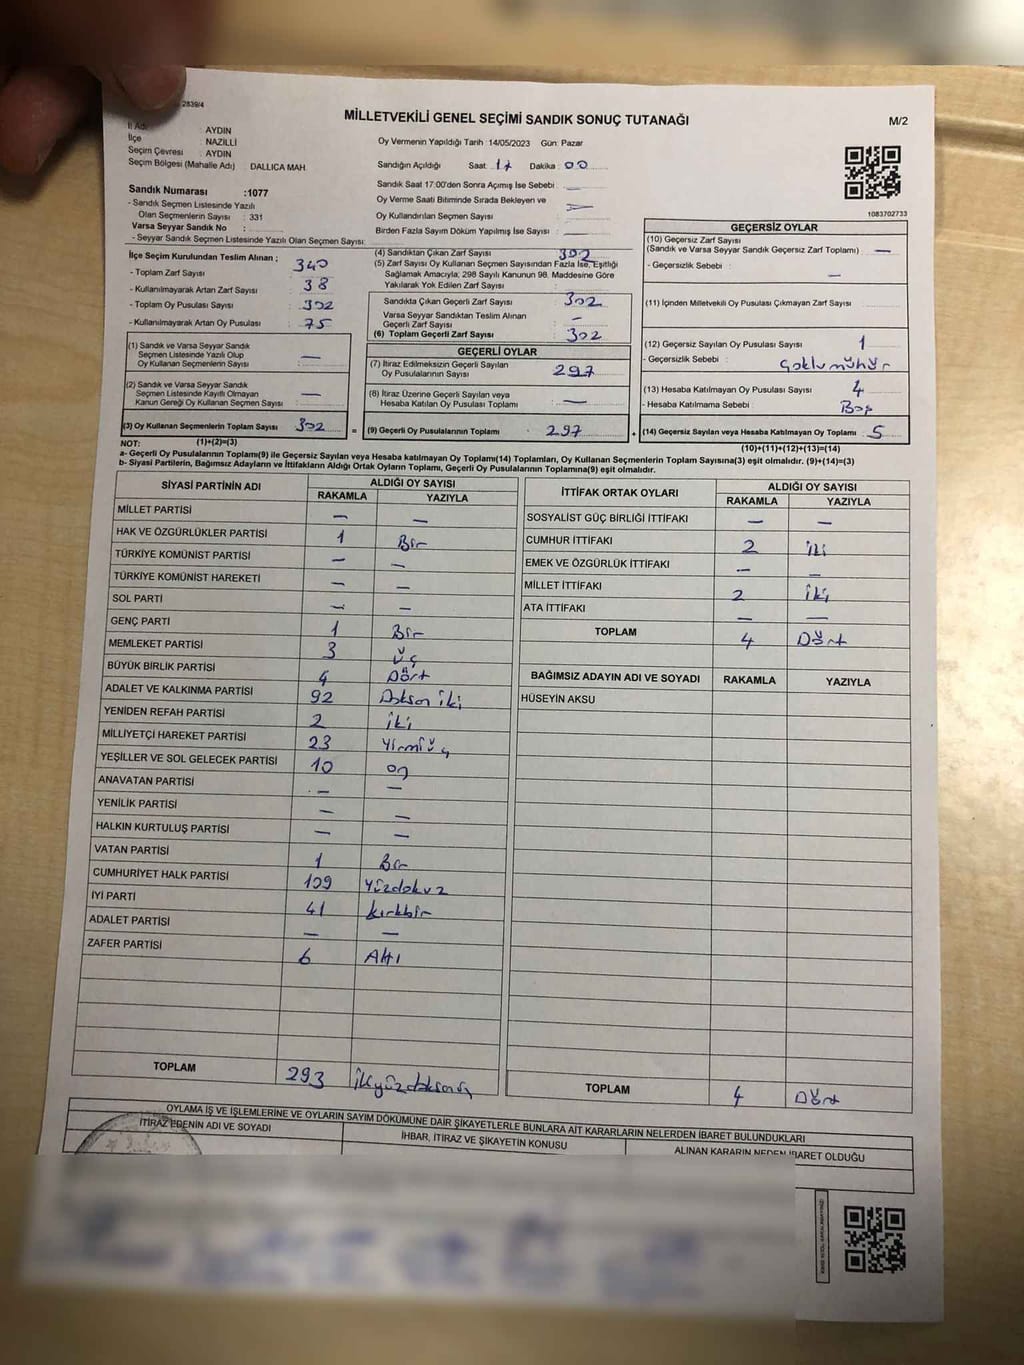 2839/4
MİLLETVEKİLİ GENEL SEÇİMİ SANDIK SONUÇ TUTANAĞI
M/2
İl Adı : AYDIN
İlçe : NAZİLLİ
Seçim Çevresi : AYDIN
Seçim Bölgesi (Mahalle Adı) DALLICA MAH.
Oy Vermenin Yapıldığı Tarih :14/05/2023 Gün: Pazar
Sandığın Açıldığı Saat : 17 Dakika : 00
Sandık Saat 17:00'den Sonra Açımış İse Sebebi : —
Oy Verme Saati Bitiminde Sırada Bekleyen ve
Oy Kullandırılan Seçmen Sayısı : —
Birden Fazla Sayım Döküm Yapılmış İse Sayısı : —
1083702733
Sandık Numarası :1077
- Sandık Seçmen Listesinde Yazılı
Olan Seçmenlerin Sayısı : 331
Varsa Seyyar Sandık No :
- Seyyar Sandık Seçmen Listesinde Yazılı Olan Seçmen Sayısı:
İlçe Seçim Kurulundan Teslim Alınan ;
- Toplam Zarf Sayısı : 340
- Kullanılmayarak Artan Zarf Sayısı : 38
- Toplam Oy Pusulası Sayısı : 302
- Kullanılmayarak Artan Oy Pusulası : 75
(1) Sandık ve Varsa Seyyar Sandık
Seçmen Listesinde Yazılı Olup
Oy Kullanan Seçmenlerin Sayısı : —
(2) Sandık ve Varsa Seyyar Sandık
Seçmen Listesinde Kayıtlı Olmayan
Kanun Gereği Oy Kullanan Seçmen Sayısı : —
(3) Oy Kullanan Seçmenlerin Toplam Sayısı : 302
(4) Sandıktan Çıkan Zarf Sayısı : 302
(5) Zarf Sayısı Oy Kullanan Seçmen Sayısından Fazla İse, Eşitliği
Sağlamak Amacıyla; 298 Sayılı Kanunun 98. Maddesine Göre
Yakılarak Yok Edilen Zarf Sayısı :
Sandıkta Çıkan Geçerli Zarf Sayısı : 302
Varsa Seyyar Sandıktan Teslim Alınan
Geçerli Zarf Sayısı : —
(6) Toplam Geçerli Zarf Sayısı : 302
GEÇERLİ OYLAR
(7) İtiraz Edilmeksizin Geçerli Sayılan
Oy Pusulalarının Sayısı : 297
(8) İtiraz Üzerine Geçerli Sayılan veya
Hesaba Katılan Oy Pusulası Toplamı : —
= (9) Geçerli Oy Pusulalarının Toplamı : 297
GEÇERSİZ OYLAR
(10) Geçersiz Zarf Sayısı
(Sandık ve Varsa Seyyar Sandık Geçersiz Zarf Toplamı) : —
- Geçersizlik Sebebi : —
(11) İçinden Milletvekili Oy Pusulası Çıkmayan Zarf Sayısı :
(12) Geçersiz Sayılan Oy Pusulası Sayısı : 1
- Geçersizlik Sebebi : Çoklumühür
(13) Hesaba Katılmayan Oy Pusulası Sayısı : 4
- Hesaba Katılmama Sebebi : Boş
+ (14) Geçersiz Sayılan veya Hesaba Katılmayan Oy Toplamı : 5
NOT: (1)+(2)=(3)
(10)+(11)+(12)+(13)=(14)
a- Geçerli Oy Pusulalarının Toplamı(9) ile Geçersiz Sayılan veya Hesaba katılmayan Oy Toplamı(14) Toplamları, Oy Kullanan Seçmenlerin Toplam Sayısına(3) eşit olmalıdır. (9)+(14)=(3)
b- Siyasi Partilerin, Bağımsız Adayların ve İttifakların Aldığı Ortak Oyların Toplamı, Geçerli Oy Pusulalarının Toplamına(9) eşit olmalıdır.
SİYASİ PARTİNİN ADI ALDIĞI OY SAYISI
RAKAMLA YAZIYLA
MİLLET PARTİSİ — —
HAK VE ÖZGÜRLÜKLER PARTİSİ 1 Bir
TÜRKİYE KOMÜNİST PARTİSİ — —
TÜRKİYE KOMÜNİST HAREKETİ — —
SOL PARTİ — —
GENÇ PARTİ 1 Bir
MEMLEKET PARTİSİ 3 üç
BÜYÜK BİRLİK PARTİSİ 4 Dört
ADALET VE KALKINMA PARTİSİ 92 Doksan iki
YENİDEN REFAH PARTİSİ 2 iki
MİLLİYETÇİ HAREKET PARTİSİ 23 Yirmiüç
YEŞİLLER VE SOL GELECEK PARTİSİ 10 on
ANAVATAN PARTİSİ — —
YENİLİK PARTİSİ — —
HALKIN KURTULUŞ PARTİSİ — —
VATAN PARTİSİ 1 Bir
CUMHURİYET HALK PARTİSİ 109 Yüzdokuz
İYİ PARTİ 41 kırkbir
ADALET PARTİSİ — —
ZAFER PARTİSİ 6 Altı
TOPLAM 293 ikiyüzdoksanüç
İTTİFAK ORTAK OYLARI ALDIĞI OY SAYISI
RAKAMLA YAZIYLA
SOSYALİST GÜÇ BİRLİĞİ İTTİFAKI — —
CUMHUR İTTİFAKI 2 iki
EMEK VE ÖZGÜRLÜK İTTİFAKI — —
MİLLET İTTİFAKI 2 iki
ATA İTTİFAKI — —
TOPLAM 4 Dört
BAĞIMSIZ ADAYIN ADI VE SOYADI RAKAMLA YAZIYLA
HÜSEYİN AKSU
TOPLAM 4 Dört
OYLAMA İŞ VE İŞLEMLERİNE VE OYLARIN SAYIM DÖKÜMÜNE DAİR ŞİKAYETLERLE BUNLARA AİT KARARLARIN NELERDEN İBARET BULUNDUKLARI
İTİRAZ EDENİN ADI VE SOYADI
İHBAR, İTİRAZ VE ŞİKAYETİN KONUSU
ALINAN KARARIN NEDEN İBARET OLDUĞU